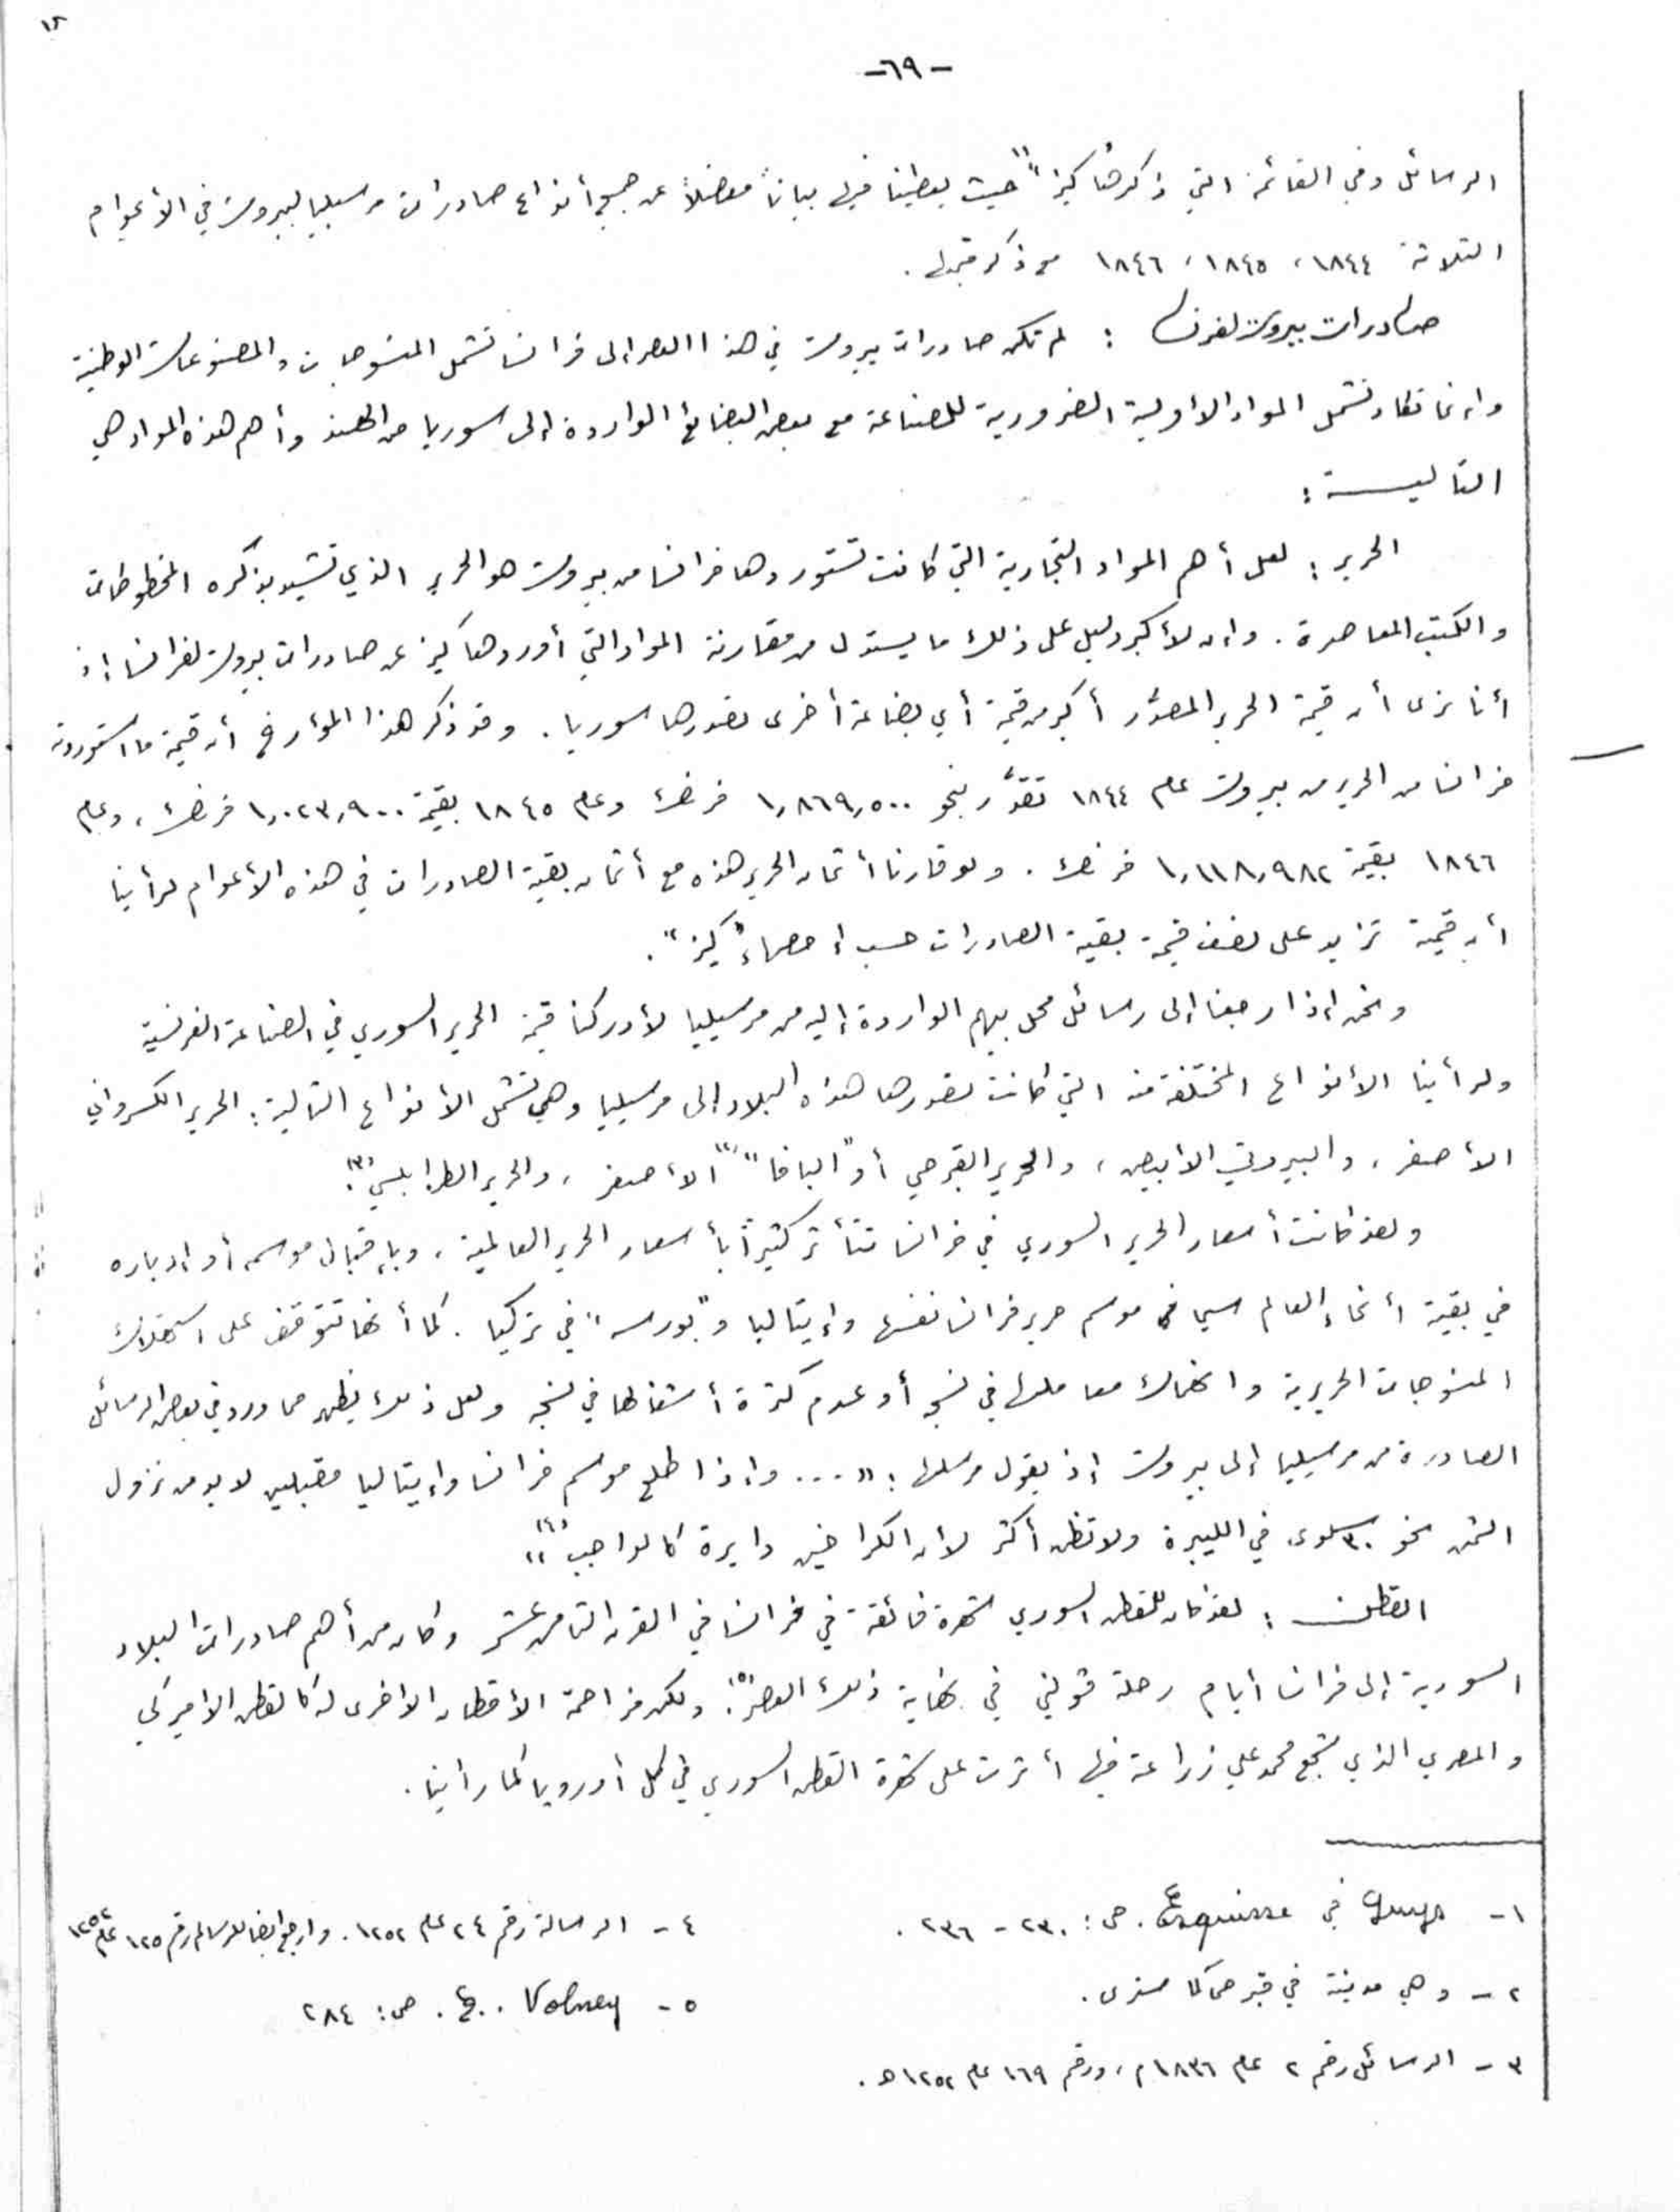 ١٢
-٦٩-
الرسائل وفي القائمة التي ذكرها كيز"(١) حيث يعطينا فيها بياناً مفصلاً عن جميع أنواع صادرات مرسيليا لبيروت في الأعوام
الثلاثة ١٨٤٤، ١٨٤٥، ١٨٤٦ مع ذكر قيمتها.
صادرات بيروت لفرنسا : لم تكن صادرات بيروت في هذا العصر إلى فرانسا تشمل المنسوجات والمصنوعات الوطنية
وإنما تكاد تشمل المواد الأولية الضرورية للصناعة مع بعض البضائع الواردة إلى سوريا من الهند وأهم هذه المواد هي
التاليـــة :
الحرير : لعل أهم المواد التجارية التي كانت تستوردها فرانسا من بيروت هو الحرير الذي تشيد بذكره المخطوطات
والكتب المعاصرة. وإن لأكبر دليل على ذلك ما يستدل من مقارنة المواد التي أوردها كيز عن صادرات بيروت لفرانسا إذ
أنا نرى أن قيمة الحرير المصدَّر أكبر من قيمة أي بضاعة أخرى تصدرها سوريا. وقد ذكر هذا المؤرخ أن قيمة ما استوردته
فرانسا من الحرير من بيروت عام ١٨٤٤ تقدَّر بنحو ١,٨٦٩,٥٠٠ فرنك وعام ١٨٤٥ بقيمة ١,٠٢٣,٩٠٠ فرنك، وعام
١٨٤٦ بقيمة ١,١١٨,٩٨٢ فرنك. ولو قارنا أثمان الحرير هذه مع أثمان بقية الصادرات في هذه الأعوام لرأينا
أن قيمة تزيد على نصف قيمة بقية الصادرات حسب إحصاء "كيز".
ونحن إذا رجعنا إلى رسائل محل بيهم الواردة إليه من مرسيليا لأدركنا قيمة الحرير السوري في الصناعة الفرنسية
ولرأينا الأنواع المختلفة منه التي كانت تصدرها هذه البلاد إلى مرسيليا وهي تشمل الأنواع التالية: الحرير الكسرواني
الأصفر، والبيروتي الأبيض، والحرير القبرصي أو "البافا"(٢) الأصفر، والحرير الطرابلسي(٣).
ولقد كانت أسعار الحرير السوري في فرانسا تتأثر كثيراً بأسعار الحرير العالمية، وبإقبال موسمه أو إدباره
في بقية أنحاء العالم سيما في موسم حرير فرانسا نفسها وإيتاليا و"بورسه" في تركيا. كما أنها تتوقف على استهلاك
المنسوجات الحريرية وانهماك معاملها في نسجه أو عدم كثرة أشغالها في نسجه ولعل ذلك يظهر مما ورد في بعض الرسائل
الصادرة من مرسيليا إلى بيروت إذ يقول مرسلها : «... وإذا طلع موسم فرانسا وإيتاليا مقبلين لا بد من نزول
الثمن نحو ٣٠ سلوى في الليبرة ولا تظن أكثر لأن الكراخين دايرة كالواجب"(٤)
القطـن : لقد كان للقطن السوري شهرة فائقة في فرانسا في القرن الثامن عشر وكان من أهم صادرات البلاد
السورية إلى فرانسا أيام رحلة ڤولني في نهاية ذلك العصر(٥). ولكن مزاحمة الأقطان الأخرى له كالقطن الاميركي
والمصري الذي شجع محمد علي زراعته فيها أثرت على شهرة القطن السوري في كل أوروبا كما رأينا.
١ - Guys في Esquisse. ص: ٢٣٠ - ٢٣٦.
٢ - وهي مدينة في قبرص كما سنرى.
٣ - الرسائل رقم ٢ عام ١٨٣٦م، ورقم ١٦٩ عام ١٢٥٢ه.
٤ - الرسالة رقم ٢٤ عام ١٢٥٢. وارجع أيضاً للرسالة رقم ١٢٥ عام ١٢٥٢
٥ - Volney. E.. ص: ٢٨٤